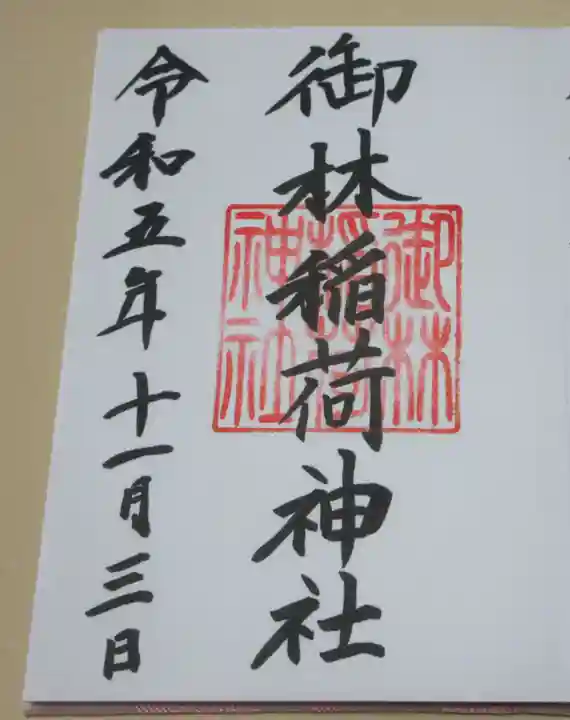 御林稲荷神社
御林稲荷神社
令和五年十一月三日